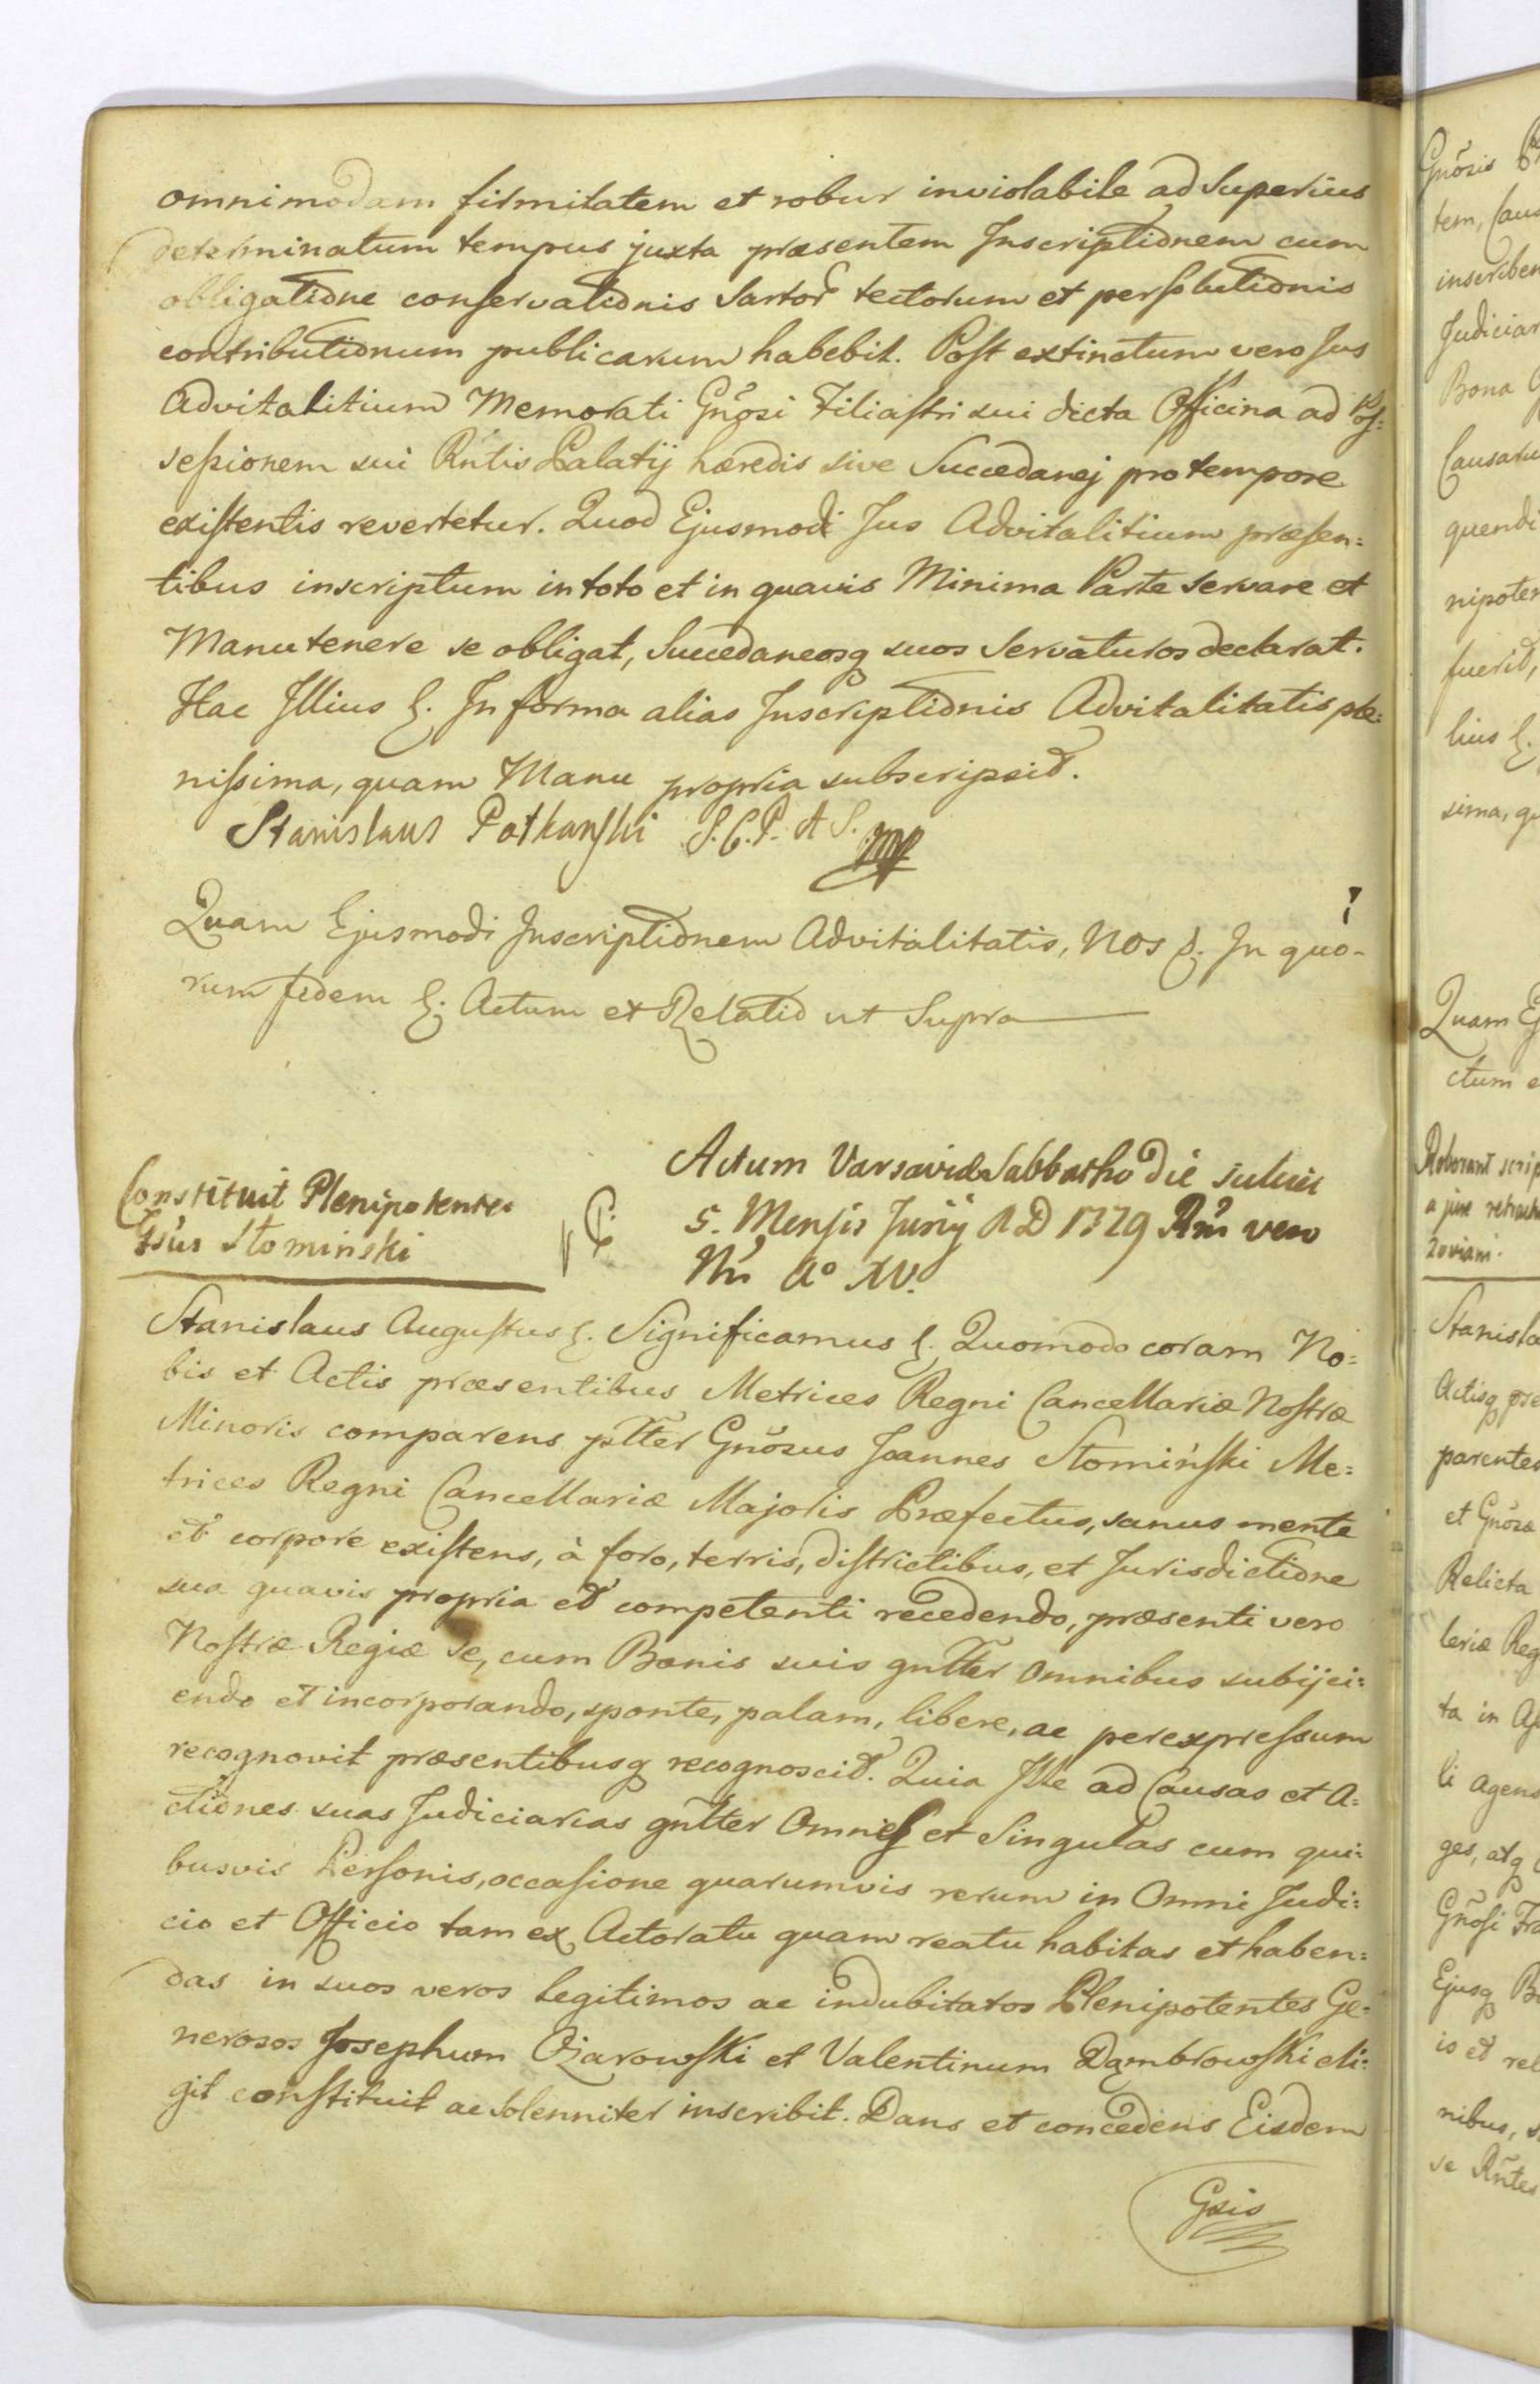 omnimodam firmitatem et robur inviolabile ad Superius
determinatum tempus juxta præsentem Inscriptionem cum
obligatione conservationis Sartor tectorum et persolutionis
contributionum publicarum habebit. Post extinctum vero Jus
Advitalitium Memorati Gnosi Filiastri sui dicta Officina ad Pos=
sessionem sui Rntis Palatij hæredis sive Succedanej pro tempore
existentis revertetur. Quod Ejusmodi Jus Advitalitium præsen=
tibus inscriptum in toto et in quavis Minima Parte servare et
Manutenere se obligat, Succedaneosq suos Servaturos declarat.
Hac Illius &. In forma alias Inscriptionis Advitalitatis ple=
nissima, quam Manu propria subscripsit.
Stanislaus Potkanski S.C.P. A S. mp
Quam Ejusmodi Inscriptionem Advitalitatis, Nos &. In quo-
rum fidem &. Actum et Relatio ut Supra
Constituit Plenipotentes
Gsus Słominski
Actum Varsaviæ Sabbatho Die
5. Mensis Junij A D 1779 Rni vero
Nri Ao XV.
Stanislaus Augustus &. Significamus &. Quomodo coram No=
bis et Actis præsentibus Metrices Regni Cancellariæ Nostræ
Minoris comparens pltter Gnosus Joannes Słomiński Me=
trices Regni Cancellariæ Majoris Præfectus, sanus mente
et corpore existens, à foro, terris, districtibus, et Jurisdictione
sua quavis propria et competenti recedendo, præsenti vero
Nostræ Regiæ se, cum Bonis suis gnltter omnibus subijci=
endo et incorporando, sponte, palam, libere, ac per expressum
recognovit præsentibusq recognoscit. Quia Ille ad Causas et A=
ctiones suas Judiciarias gnltter Omnes et Singulas cum qui=
busvis Personis, occasione quarumvis rerum in Omni Judi=
cio et Officio tam ex Actoratu quam reatu habitas et haben=
das in suos veros legitimos ac indubitatos Plenipotentes Ge=
nerosos Josephum Ożarowski et Valentinum Dąmbrowski eli=
git constituit ac Solenniter inscribit. Dans et concedens Eisdem
Gsis
Gnosis
tem,
inscriben
Judiciar
Bona
Causaru
quendi
nipoten
fuerit,
lius &.
sima, qu
Quam Ej
ctum e
Roborant scrip
a jure
Stanisla
Actisq præ
parentes
et Gnosa
Relicta
leriæ Reg
ta in
li agens
ges, atq
Gnosi Fra
Ejusq
is et rel
nibus, s
se Rntes